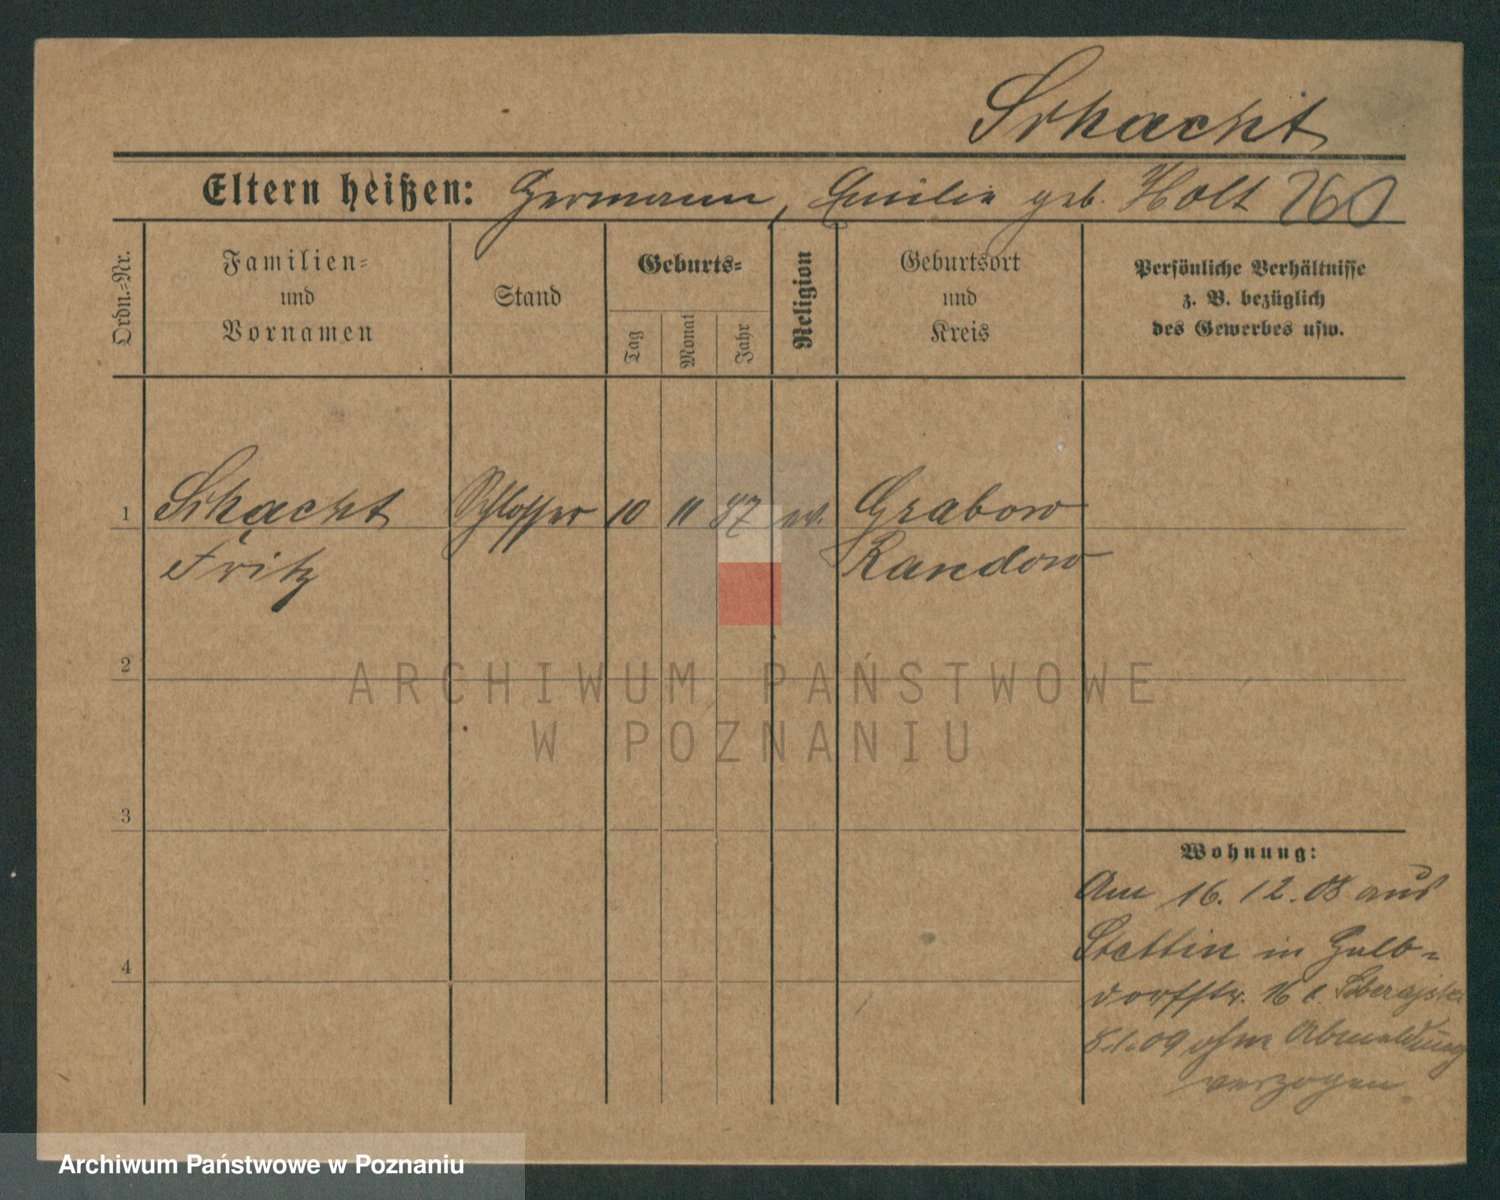 Schacht
Eltern heißen: Hermann, Emilie geb. Holt 260
Ordn.-Nr.
Familien-
und
Vornamen
Stand
Geburts-
Tag
Monat
Jahr
Religion
Geburtsort
und
Kreis
Persönliche Verhältnisse
z. B. bezüglich
des Gewerbes usw.
1 Schacht Schlosser 10 11 87 ev. Grabow
Fritz Randow
2
3
4
Wohnung:
Am 16.12.08 aus
Stettin in
dorffstr. 16 b.
8.1.09 ohne Abmeldung
verzogen.
ARCHIWUM PAŃSTWOWE
W POZNANIU
Archiwum Państwowe w Poznaniu